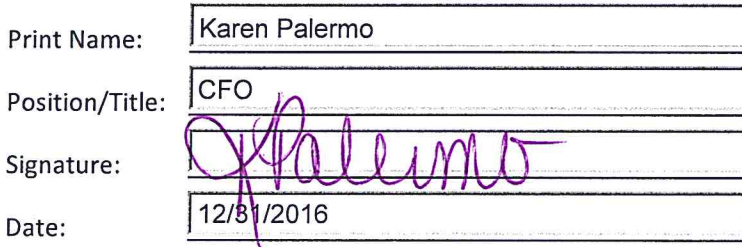 Print Name: Karen Palermo
Position/Title: CFO
Signature: KPalermo
Date: 12/31/2016